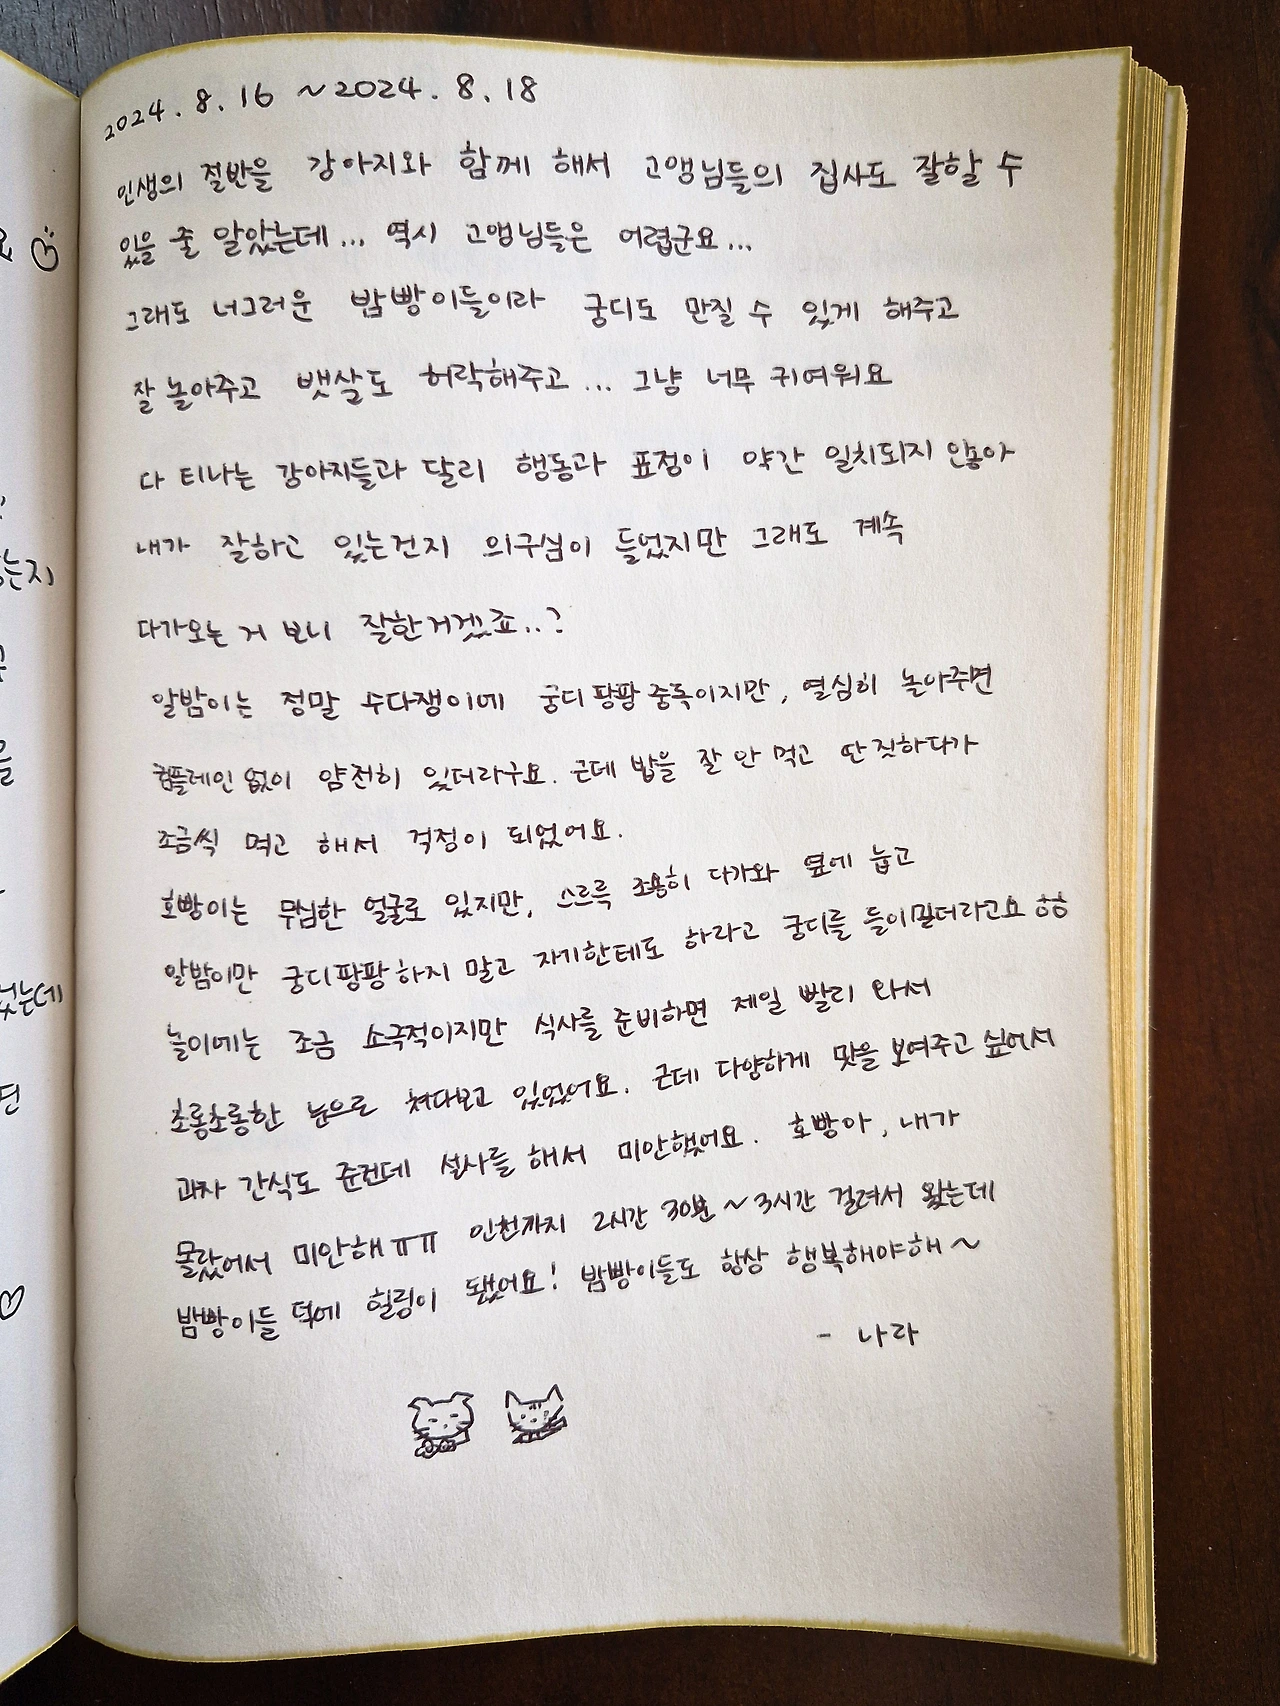 2024. 8. 16 ~ 2024. 8. 18
인생의 절반을 강아지와 함께 해서 고앵님들의 집사도 잘할 수
있을 줄 알았는데... 역시 고앵님들은 어렵군요...
그래도 너그러운 밤빵이들이라 궁디도 만질 수 있게 해주고
잘 놀아주고 뱃살도 허락해주고... 그냥 너무 귀여워요
다 티나는 강아지들과 달리 행동과 표정이 약간 일치되지 않아
내가 잘하고 있는건지 의구심이 들었지만 그래도 계속
다가오는 거 보니 잘한거겠죠..?
알밤이는 정말 수다쟁이에 궁디팡팡 중독이지만, 열심히 놀아주면
컴플레인 없이 얌전히 있더라구요. 근데 밥을 잘 안 먹고 딴 짓하다가
조금씩 먹고 해서 걱정이 되었어요.
호빵이는 무심한 얼굴로 있지만, 스르륵 조용히 다가와 옆에 눕고
알밤이만 궁디팡팡하지 말고 자기한테도 하라고 궁디를 들이밀더라고요 ㅎㅎ
놀이에는 조금 소극적이지만 식사를 준비하면 제일 빨리 와서
초롱초롱한 눈으로 쳐다보고 있었어요. 근데 다양하게 맛을 보여주고 싶어서
과자 간식도 준건데 설사를 해서 미안했어요. 호빵아, 내가
몰랐어서 미안해ㅠㅠ 인천까지 2시간 30분~3시간 걸려서 왔는데
밤빵이들 덕에 힐링이 됐어요! 밤빵이들도 항상 행복해야해~
- 나라